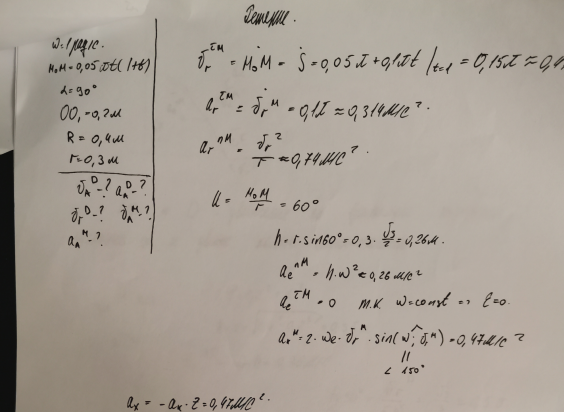 Решение.
ω=1 рад/с.
M₀M=0,05πt(1+t)
α=90°
OO₁=0,2м
R=0,4м
r=0,3м
υ_A^D-? a_A^D-?
υ_r^D-? υ_A^M-?
a_A^M-?
υ_r^τM = M₀M = Ṡ = 0,05π+0,1πt /t=1 = 0,15π ≈ 0,4
a_r^τM = υ_r^M = 0,1π ≈ 0,314м/с².
a_r^nM = υ_r²/r ≈ 0,74м/с².
α = M₀M/r = 60°
h=r·sin60°=0,3·√3/2=0,26м.
a_e^nM = h·ω²≈0,26м/с²
a_e^τM = 0 т.к. ω=const => ε=0.
a_к^M=2·ωe·υ_r^M·sin(ω^;υ_r^M)=0,47м/с²
||
< 150°
a_x = -a_к·2=0,47м/с².